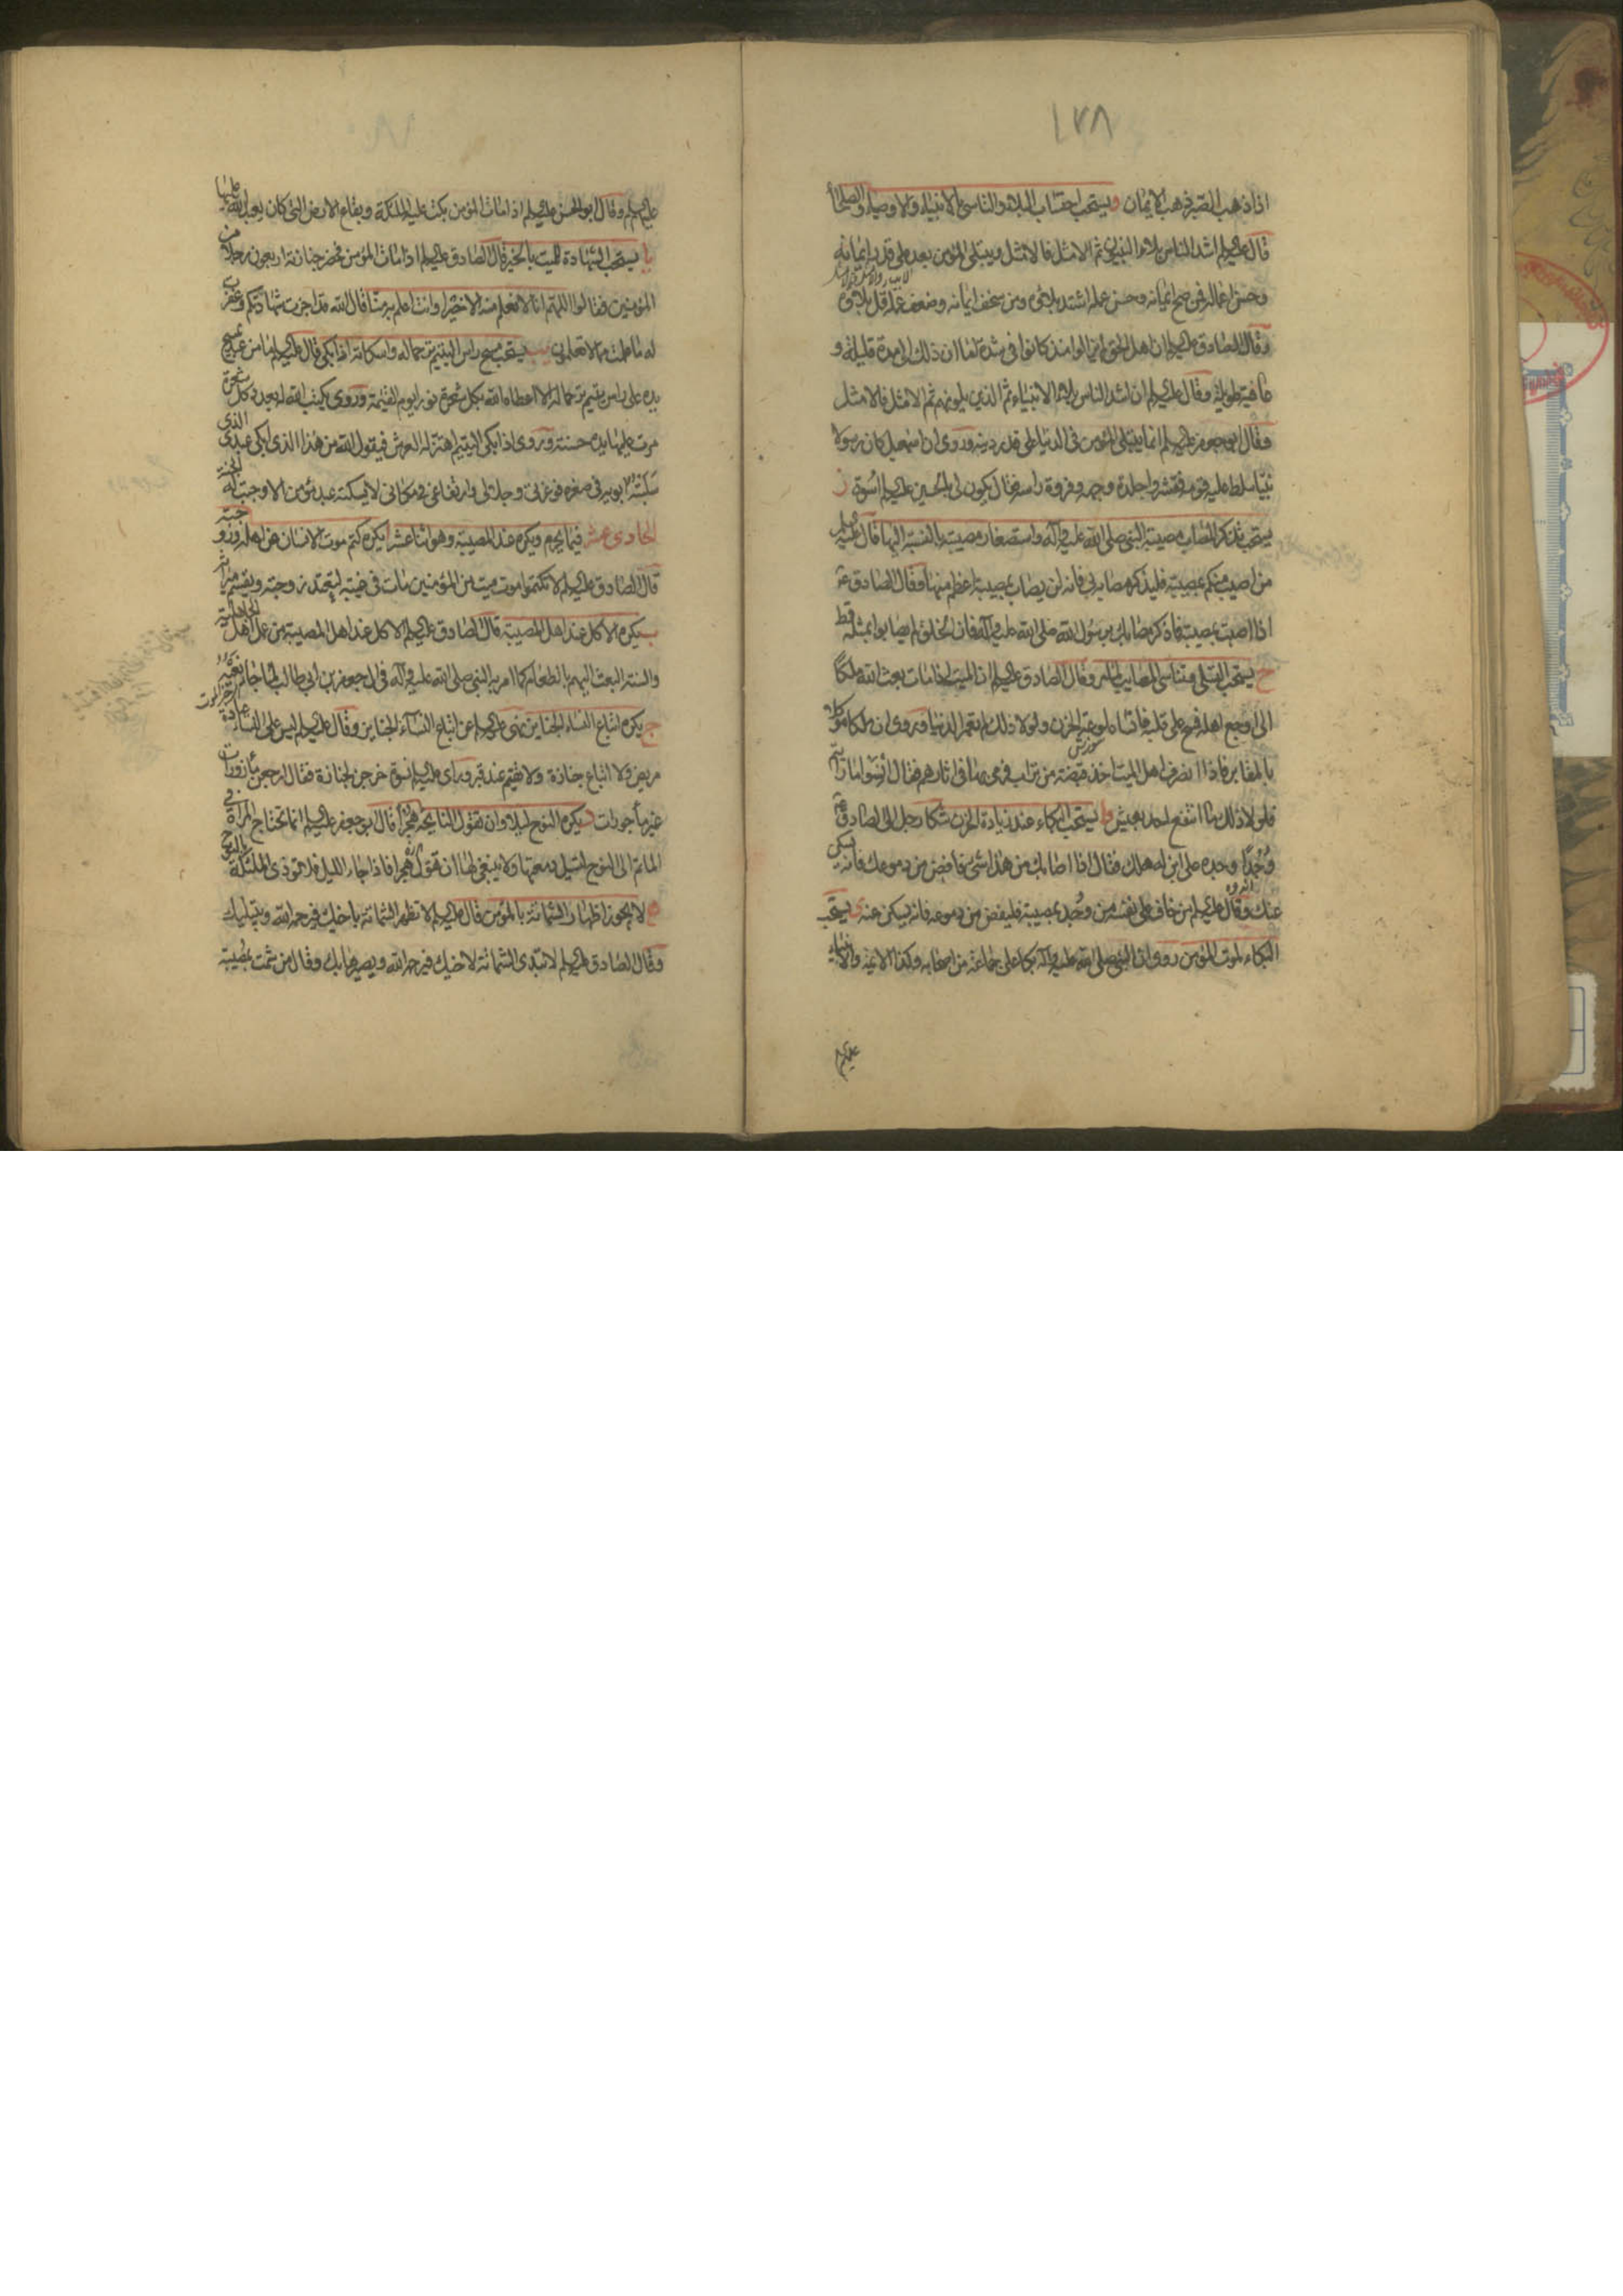 ١٣٨
اذا ذهب الصبر ذهب الايمان و يستحب احتساب البلاء والتاسي بالانبياء والاوصياء والصلحاء
قال عليه السلام اشد الناس بلاء النبيون ثم الامثل فالامثل ويبتلى المؤمن بعد على قدر ايمانه
وحسن اعماله فمن صح ايمانه وحسن عمله اشتد بلائه ومن سخف ايمانه وضعف عمله قل بلاؤه
وقال الصادق عليه السلام ان اهل الحق لم يزالوا منذ كانوا في شدة اما ان ذلك الى مدة قليلة و
عافية طويلة وقال عليه السلام ان اشد الناس بلاء الانبياء ثم الذين يلونهم ثم الامثل فالامثل
وقال ابو جعفر عليه السلام انما يبتلى المؤمن في الدنيا على قدر دينه وروى ان اسمعيل كان رسولا
نبيا سلط عليه قومه فقشروا جلدة وجهه وفروة راسه فقال يكون لي بالحسين عليه السلام اسوة ز
يستحب تذكر المصاب مصيبة النبي صلى الله عليه وآله واستصغار مصيبته بالنسبة اليها قال عليه السلام
من اصيب منكم بمصيبة فليذكر مصابه بي فانه لن يصاب بمصيبة اعظم منها وقال الصادق ع
اذا اصبت بمصيبة فاذكر مصابك برسول الله صلى الله عليه وآله فان الخلق لم يصابوا بمثله قط
ح يستحب التسلي وتناسي المصائب وقال الصادق عليه السلام ان الميت اذا مات بعث الله ملكا
الى اوجع اهله فمسح على قلبه فانساه لوعة الحزن ولولا ذلك لم تعمر الدنيا وروى ان ملكا موكلا
بالمقابر فاذا انصرف اهل الميت اخذ قبضة من تراب فرمى بها في اثارهم فقال انسوا ما رايتم
فلولا ذلك ما انتفع احد بعيش ط يستحب البكاء عند زيادة الحزن شكا رجل الى الصادق ع
وجدا وجده على ابن له هلك فقال اذا اصابك من هذا شئ فافض من دموعك فانه يسكن
عنك وقال عليه السلام من خاف على نفسه من وجد بمصيبة فليفض من دموعه فانه يسكن عنه ى يستحب
البكاء لموت المؤمن روى ان النبي صلى الله عليه وآله بكا على جماعة من اصحابه وكذا الائمة والانبياء
عليهم
عليهم السلام وقال ابو الحسن عليه السلام اذا مات المؤمن بكت عليه الملئكة وبقاع الارض التي كان يعبد الله عليها
يا يستحب الشهادة للميت بالخير قال الصادق عليه السلام اذا مات المؤمن فحضر جنازته اربعون رجلا من
المؤمنين فقالوا اللهم انا لا نعلم منه الا خيرا وانت اعلم به منا قال الله قد اجزت شهادتكم وغفرت
له ما علمت مما لا تعلمون يب يستحب مسح راس اليتيم ترحما له واسكاته اذا بكى قال عليه السلام ما من عبد يمسح
يده على راس يتيم ترحما له الا اعطاه الله بكل شعرة نورا يوم القيمة وروى يكتب الله له بعدد كل شعرة
مرت عليها يده حسنة وروى اذا بكى اليتيم اهتز له العرش فيقول الله من هذا الذي ابكى عبدي الذي
سلبته ابويه في صغره فوعزتي وجلالي وارتفاعي في مكاني لا يسكته عبد مؤمن الا وجبت له الجنة
الحادى عشر فيما يحرم ويكره عند المصيبة وهو اثنا عشر ا يكره كتم موت الانسان عن اهله وزوجته
قال الصادق عليه السلام لا تكتموا موت ميت من المؤمنين مات في غيبته لتعتد زوجته ويقسم ميراثه
ب يكره الاكل عند اهل المصيبة قال الصادق عليه السلام الاكل عند اهل المصيبة من عمل اهل الجاهلية
والسنة البعث اليهم بالطعام كما امر به النبي صلى الله عليه وآله في آل جعفر بن ابي طالب لما جاء نعيه
ج يكره اتباع النساء الجنايز نهى عليه السلام عن اتباع النساء الجنايز وقال عليه السلام ليس على النساء عيادة
مريض ولا اتباع جنازة ولا تقيم عند قبر وراى عليه السلام نسوة خرجن لجنازة فقال ارجعن مأزورات
غير مأجورات د يكره النوح ليلا وان تقول النايحة هجرا قال ابو جعفر عليه السلام انما تحتاج المراة في
الماتم الى النوح لتسيل دمعتها ولا ينبغي لها ان تقول هجرا فاذا جاء الليل فلا تؤذي الملئكة بالنوح
ه لا يجوز اظهار الشماتة بالمؤمن قال عليه السلام لا تظهر الشماتة باخيك فيرحمه الله ويبتليك
وقال الصادق عليه السلام لا تبدى الشماتة لاخيك فيرحمه الله ويصيرها بك وقال من شمت بمصيبة